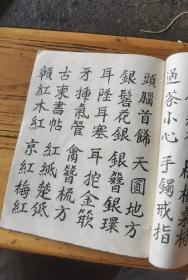 過茶小心 手鐲戒指
頭腦首飾 天圓地方
銀髻花銀 簪銀環
耳陞耳塞 耳挖金
牙揷氣管 禽簪梳方
古柬書帖 紅紙楚紙
紅木紅 京紅梅紅